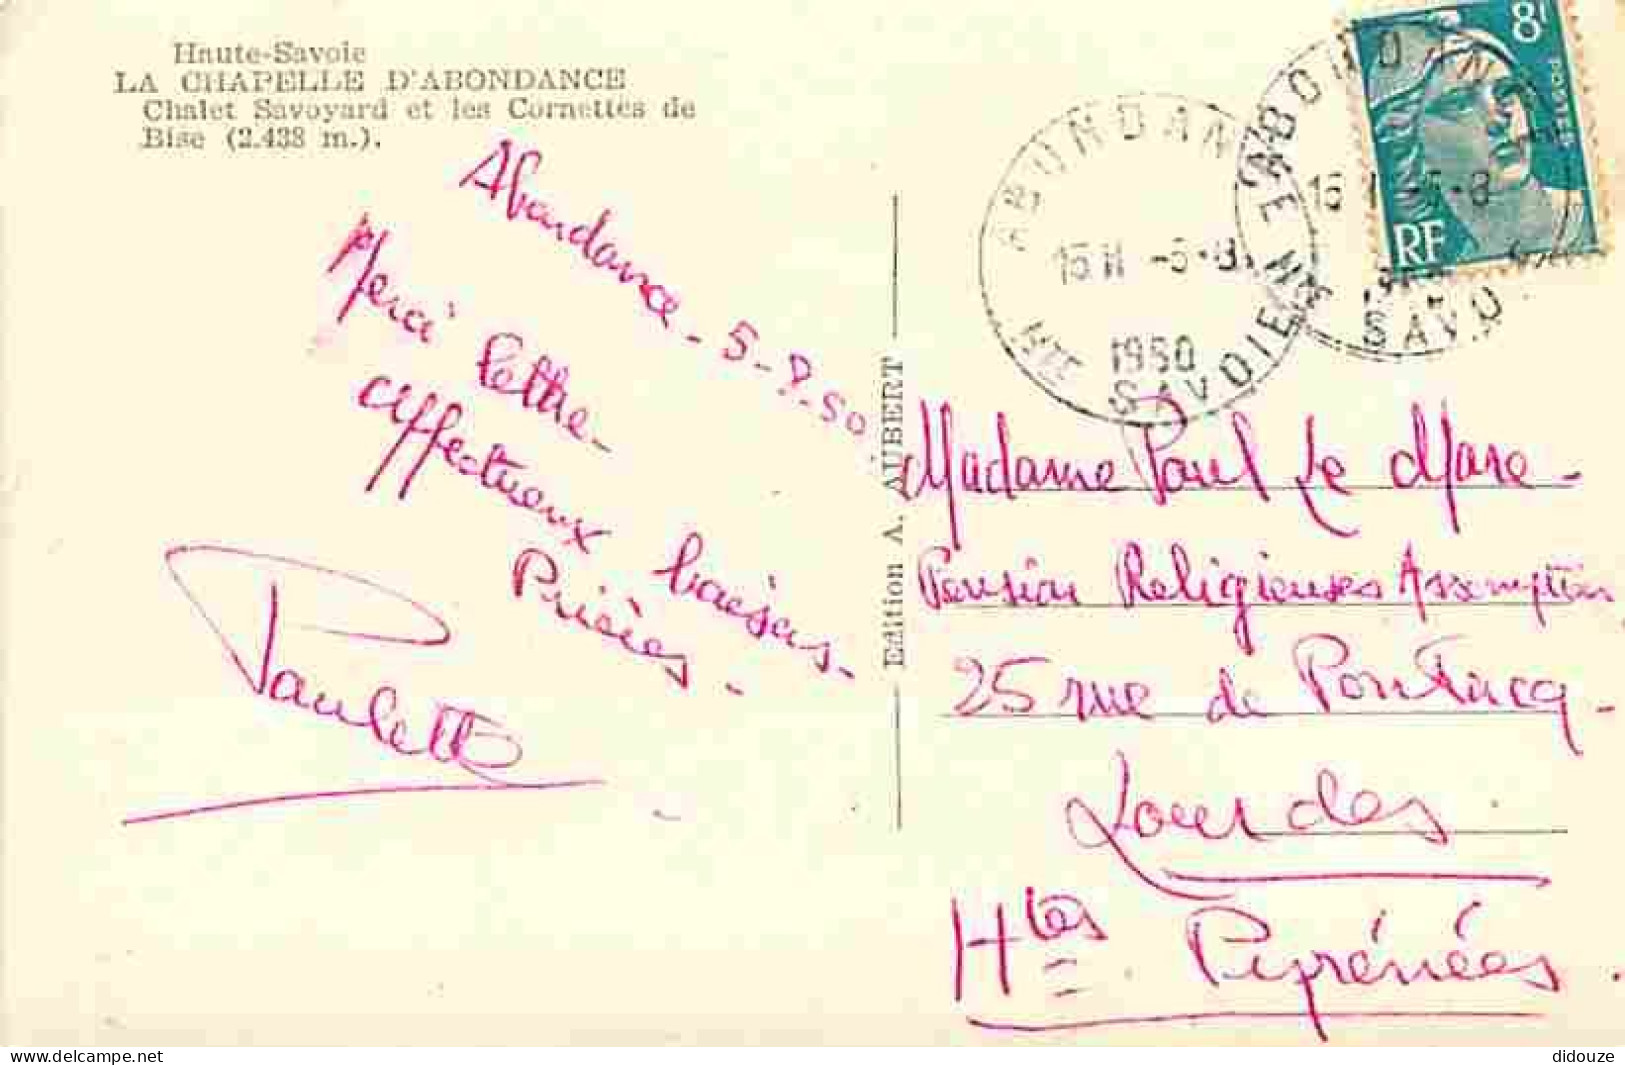 Haute-Savoie
LA CHAPELLE D'ABONDANCE
Chalet Savoyard et les Cornettes de
Bise (2.438 m.).
Abondance - 5-8.50
Merci lettre -
affectueux baisers -
Prières -
Paulette
Edition A. AUBERT
8F
POSTES
RF
ABONDANCE
15 H -5-8
1950
HTE SAVOIE
ABONDANCE
15 H -5-8
HTE SAVO
Madame Paul Le Mare -
Pension Religieuses Assomption
25 rue de Pontacq -
Lourdes
Htes Pyrénées.
delcampe.net
didouze